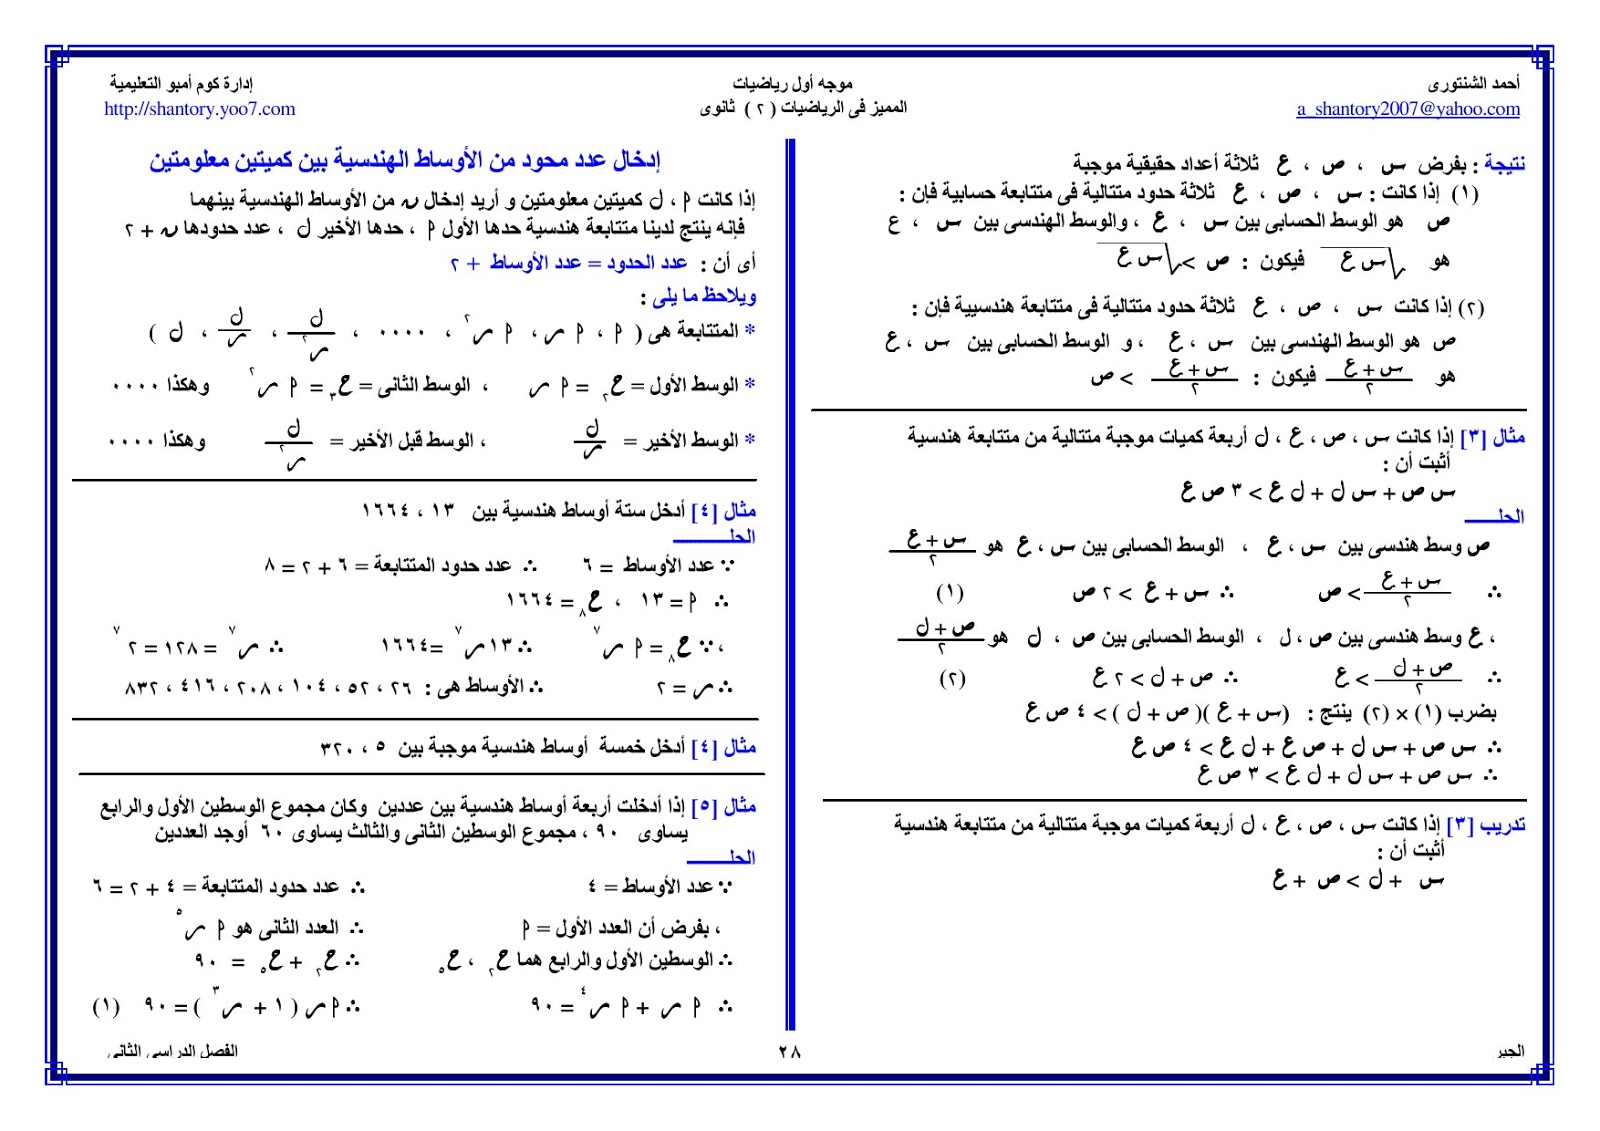 أحمد الشنتورى
موجه أول رياضيات
إدارة كوم أمبو التعليمية
a_shantory2007@yahoo.com
المميز فى الرياضيات ( ٢ ) ثانوى
http://shantory.yoo7.com
نتيجة : بفرض س ، ص ، ع ثلاثة أعداد حقيقية موجبة
(١) إذا كانت : س ، ص ، ع ثلاثة حدود متتالية فى متتابعة حسابية فإن :
ص هو الوسط الحسابى بين س ، ع ، والوسط الهندسى بين س ، ع
هو √(س ع) فيكون : ص > √(س ع)
(٢) إذا كانت س ، ص ، ع ثلاثة حدود متتالية فى متتابعة هندسيية فإن :
ص هو الوسط الهندسى بين س ، ع ، و الوسط الحسابى بين س ، ع
هو (س + ع)/٢ فيكون : (س + ع)/٢ > ص
مثال [٣] إذا كانت س ، ص ، ع ، ل أربعة كميات موجبة متتالية من متتابعة هندسية
أثبت أن :
س ص + س ل + ل ع > ٣ ص ع
الحلـــــ
ص وسط هندسى بين س ، ع ، الوسط الحسابى بين س ، ع هو (س + ع)/٢
∴ (س + ع)/٢ > ص ∴ س + ع > ٢ ص (١)
، ع وسط هندسى بين ص ، ل ، الوسط الحسابى بين ص ، ل هو (ص + ل)/٢
∴ (ص + ل)/٢ > ع ∴ ص + ل > ٢ ع (٢)
بضرب (١) × (٢) ينتج : (س + ع )( ص + ل ) > ٤ ص ع
∴ س ص + س ل + ص ع + ل ع > ٤ ص ع
∴ س ص + س ل + ل ع > ٣ ص ع
تدريب [٣] إذا كانت س ، ص ، ع ، ل أربعة كميات موجبة متتالية من متتابعة هندسية
أثبت أن :
س + ل > ص + ع
إدخال عدد محود من الأوساط الهندسية بين كميتين معلومتين
إذا كانت ا ، ل كميتين معلومتين و أريد إدخال ن من الأوساط الهندسية بينهما
فإنه ينتج لدينا متتابعة هندسية حدها الأول ا ، حدها الأخير ل ، عدد حدودها ن + ٢
أى أن : عدد الحدود = عدد الأوساط + ٢
ويلاحظ ما يلى :
* المتتابعة هى ( ا ، ا ر ، ا ر² ، ٠٠٠٠ ، ل/ر² ، ل/ر ، ل )
* الوسط الأول = ح₂ = ا ر ، الوسط الثانى = ح₃ = ا ر² وهكذا ٠٠٠٠
* الوسط الأخير = ل/ر ، الوسط قبل الأخير = ل/ر² وهكذا ٠٠٠٠
مثال [٤] أدخل ستة أوساط هندسية بين ١٣ ، ١٦٦٤
الحلـــــ
∵ عدد الأوساط = ٦ ∴ عدد حدود المتتابعة = ٦ + ٢ = ٨
∴ ا = ١٣ ، ح₈ = ١٦٦٤
، ∵ ح₈ = ا ر⁷ ∴ ١٣ ر⁷ = ١٦٦٤ ∴ ر⁷ = ١٢٨ = ٢⁷
∴ ر = ٢ ∴ الأوساط هى : ٢٦ ، ٥٢ ، ١٠٤ ، ٢٠٨ ، ٤١٦ ، ٨٣٢
مثال [٤] أدخل خمسة أوساط هندسية موجبة بين ٥ ، ٣٢٠
مثال [٥] إذا أدخلت أربعة أوساط هندسية بين عددين وكان مجموع الوسطين الأول والرابع
يساوى ٩٠ ، مجموع الوسطين الثانى والثالث يساوى ٦٠ أوجد العددين
الحلـــــ
∵ عدد الأوساط = ٤ ∴ عدد حدود المتتابعة = ٤ + ٢ = ٦
، بفرض أن العدد الأول = ا ∴ العدد الثانى هو ا ر⁵
∴ الوسطين الأول والرابع هما ح₂ ، ح₅ ∴ ح₂ + ح₅ = ٩٠
∴ ا ر + ا ر⁴ = ٩٠ ∴ ا ر ( ١ + ر³ ) = ٩٠ (١)
الجبر
٢٨
الفصل الدراسى الثانى